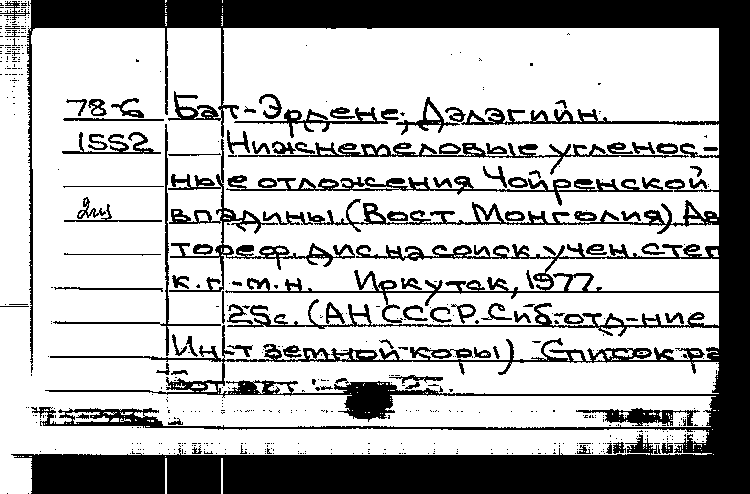 78-6 Бат-Эрдене, Дэлэгийн.
1552 Нижнемеловые угленос-
ные отложения Чойренской
впадины. (Вост. Монголия). Ав
тореф. дис. на соиск. учен. степ
к.г.-м.н. Иркутск, 1977.
25с. (АН СССР. Сиб. отд-ние
Ин-т земной коры). Список ра
бот авт.